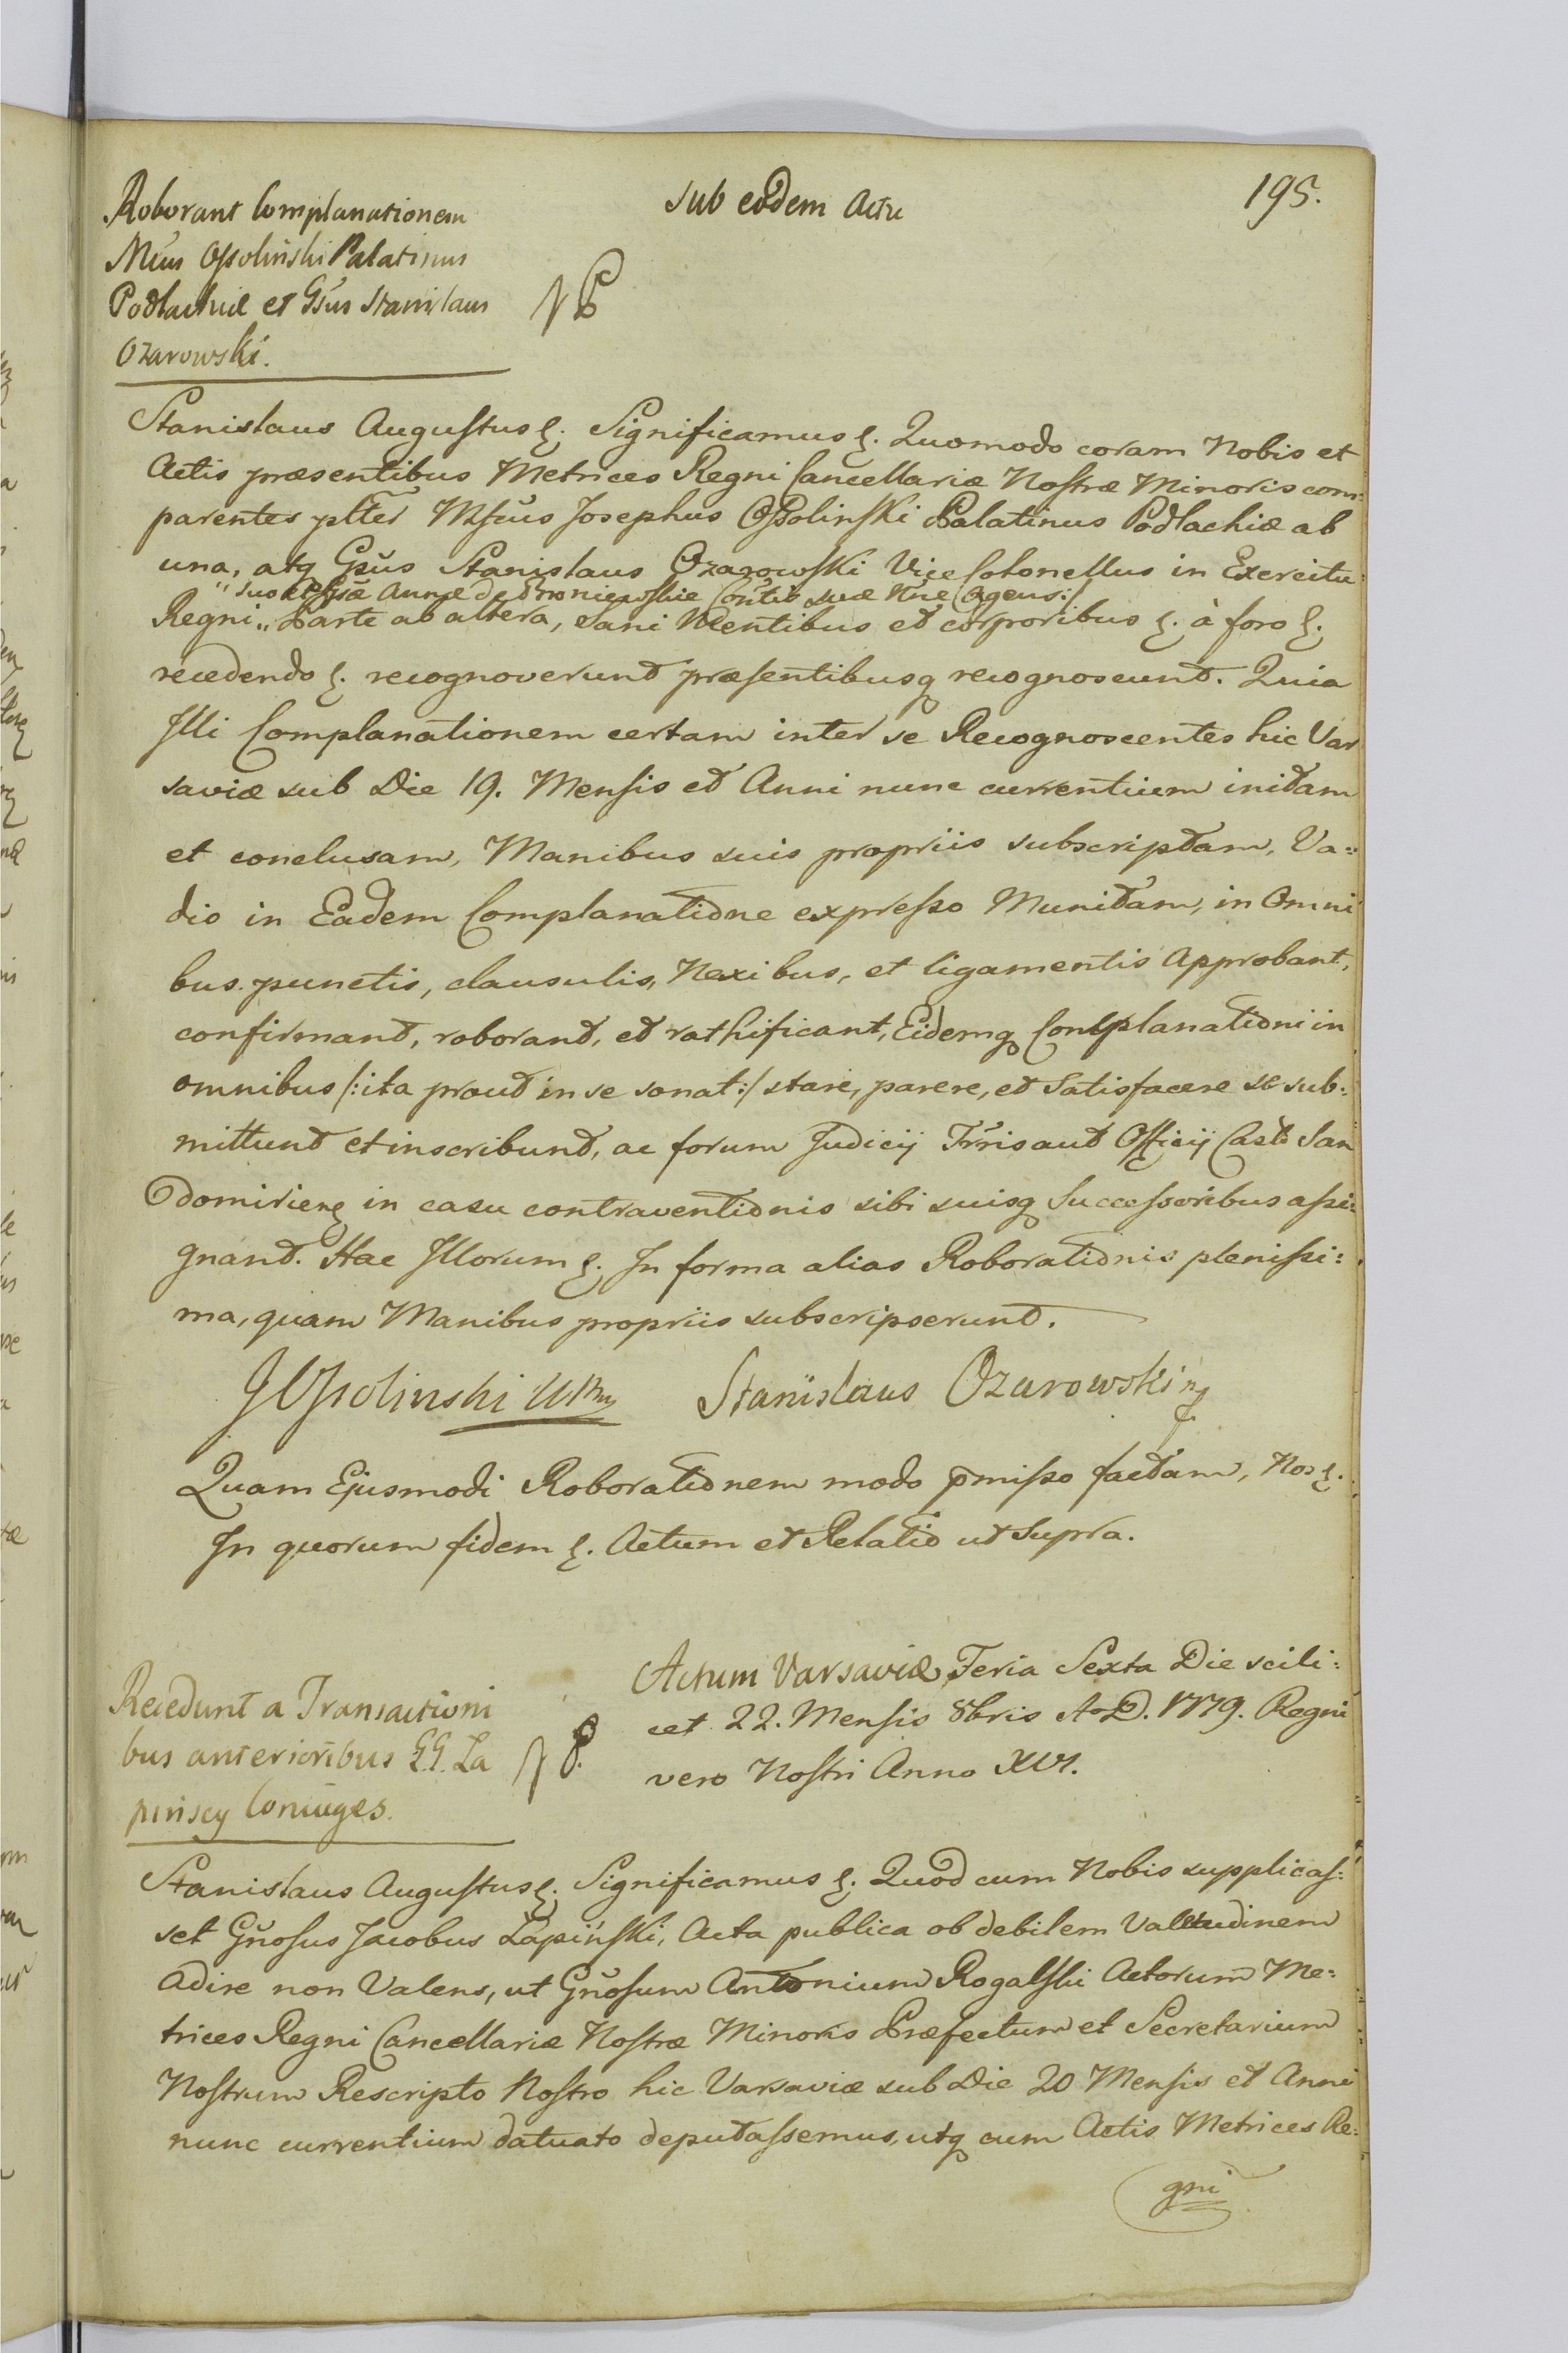 195.
Sub eodem Actu
Roborant Complanationem
Mcus Ossoliński Palatinus
Podlachiæ et Gsus Stanislaus
Ozarowski.
Stanislaus Augustus &. Significamus &. Quomodo coram Nobis et
Actis præsentibus Metrices Regni Cancellariæ Nostræ Minoris com:
parentes pltter Mfcus Josephus Ossolinski Palatinus Podlachiæ ab
una, atq Gsus Stanislaus Ozarowski Vice Colonellus in Exercitu
" Suo et Gsæ Annæ de Dmoniewskie Contis suæ Nne Agens:/
Regni " Parte ab altera, Sani Mentibus et corporibus &. à foro &.
recedendo &. recognoverunt præsentibusq recognoscunt. Quia
Illi Complanationem certam inter se Recognoscentes hic Var
saviæ sub Die 19. Mensis et Anni nunc currentium initam
et conclusam, Manibus suis propriis subscriptam, Va=
dio in Eadem Complanatione expresso Munitam, in Omni
bus punctis, clausulis, Nexibus, et ligamentis Approbant,
confirmant, roborant, et rathificant, Eidemq Complanationi in
omnibus /:ita prout in se sonat:/ stare, parere, et Satisfacere se sub:
mittunt et inscribunt, ac forum Judicij Trris aut Officij Casts San
domirien in casu contraventionis sibi suisq Successoribus assi:
gnant. Hac Illorum &. In forma alias Roborationis plenissi:
ma, quam Manibus propriis subscripserunt.
J Ossolinski WPm Stanislaus Ozarowski
Quam Ejusmodi Roborationem modo pmisso factam, Nos &.
In quorum fidem &. Actum et Relatio ut Supra.
Actum Varsaviæ, Feria Sexta Die scili:
cet 22. Mensis 8bris A D. 1779. Regni
vero Nostri Anno XVI.
Recedunt a Transactioni
bus anterioribus G.G. La
pinscy Coniuges.
Stanislaus Augustus &. Significamus &. Quod cum Nobis supplicas:
set Gnosus Jacobus Łapiński, Acta publica ob debilem Valetudinem
Adire non Valens, ut Gnosum Antonium Rogalski Actorum Me:
trices Regni Cancellariæ Nostræ Minoris Præfectum et Secretarium
Nostrum Rescripto Nostro hic Varsaviæ sub Die 20 Mensis et Anni
nunc currentium datuato deputassemus, utq cum Actis Metrices Re:
gni